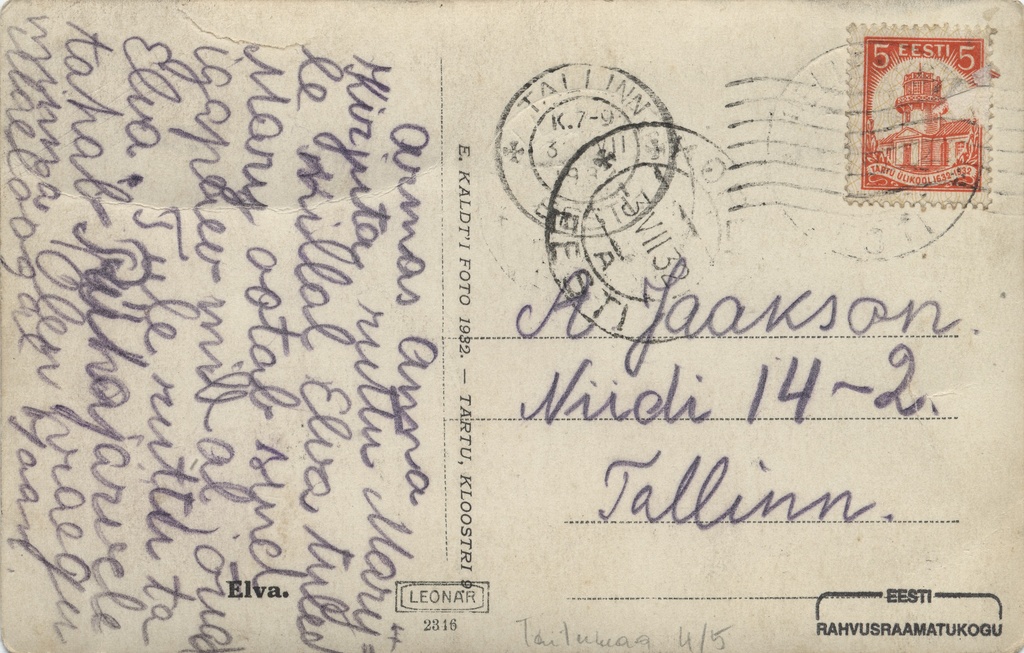 Armas Anna
Kirjuta ruttu Mary-
le millal Elva tuled
Mary ootab sind
igapäev mill al jõuad
Elva. Üle ruttu ta
tahab Pühajärvele
minna. Ollen praegu
Jaani
E. KALDT'I FOTO 1932. — TARTU, KLOOSTRI 9
Elva.
LEONAR
2316
TALLINN
K. 7-9
EESTI
VII 32
5 EESTI 5
TARTU ÜLIKOOL 1632-1932
A Jaakson.
Niidi 14-2.
Tallinn.
4/5
EESTI
RAHVUSRAAMATUKOGU